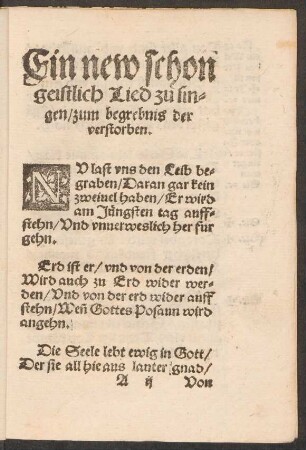 Ein new schon
geistlich Lied zů sin-
gen/zum begrebnis der
verstorben.
NV last vns den Leib be-
graben/Daran gar kein
zweiuel haben/Er wird
am Jüngsten tag auff-
stehn/Vnd vnuerweslich her fur
gehn.
Erd ist er/vnd von der erden/
Wird auch zu Erd wider wer-
den/Vnd von der erd wider auff
stehn/Weñ Gottes Posaun wird
angehn.
Die Seele lebt ewig in Gott/
Der sie all hie aus lauter gnad/
A ij Von